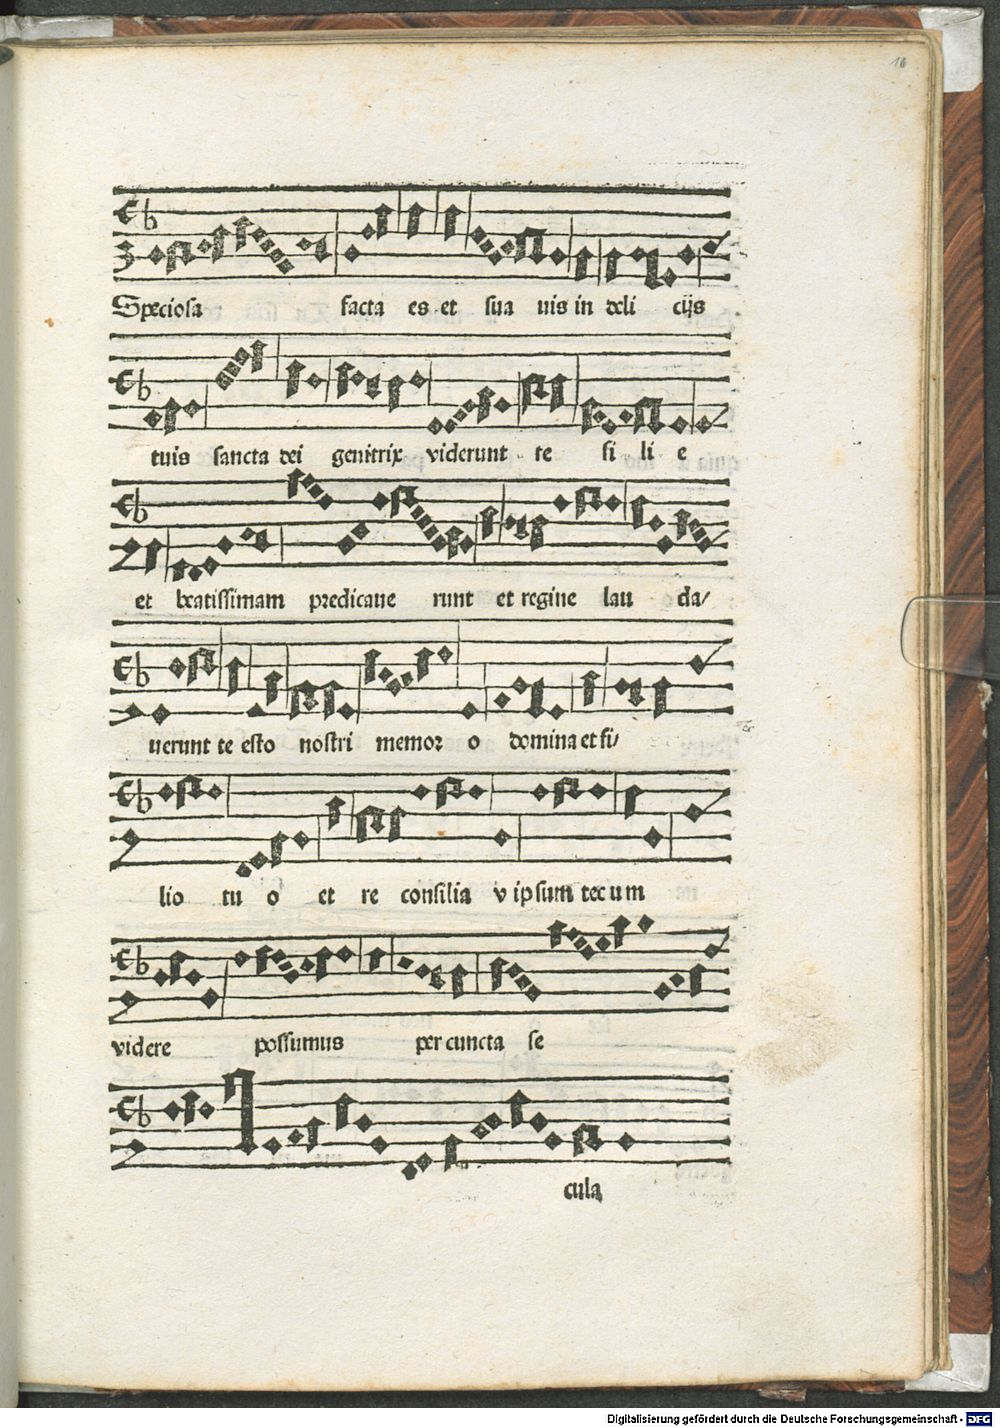 16
Speciosa facta es et sua uis in deli cijs
tuis sancta dei genitrix viderunt te fi li e
et beatissimam predicaue runt et regine lau da/
uerunt te esto nostri memor o domina et fi/
lio tu o et re consilia v ipsum tecum
videre possumus per cuncta se
cula
Digitalisierung gefördert durch die Deutsche Forschungsgemeinschaft - DFG